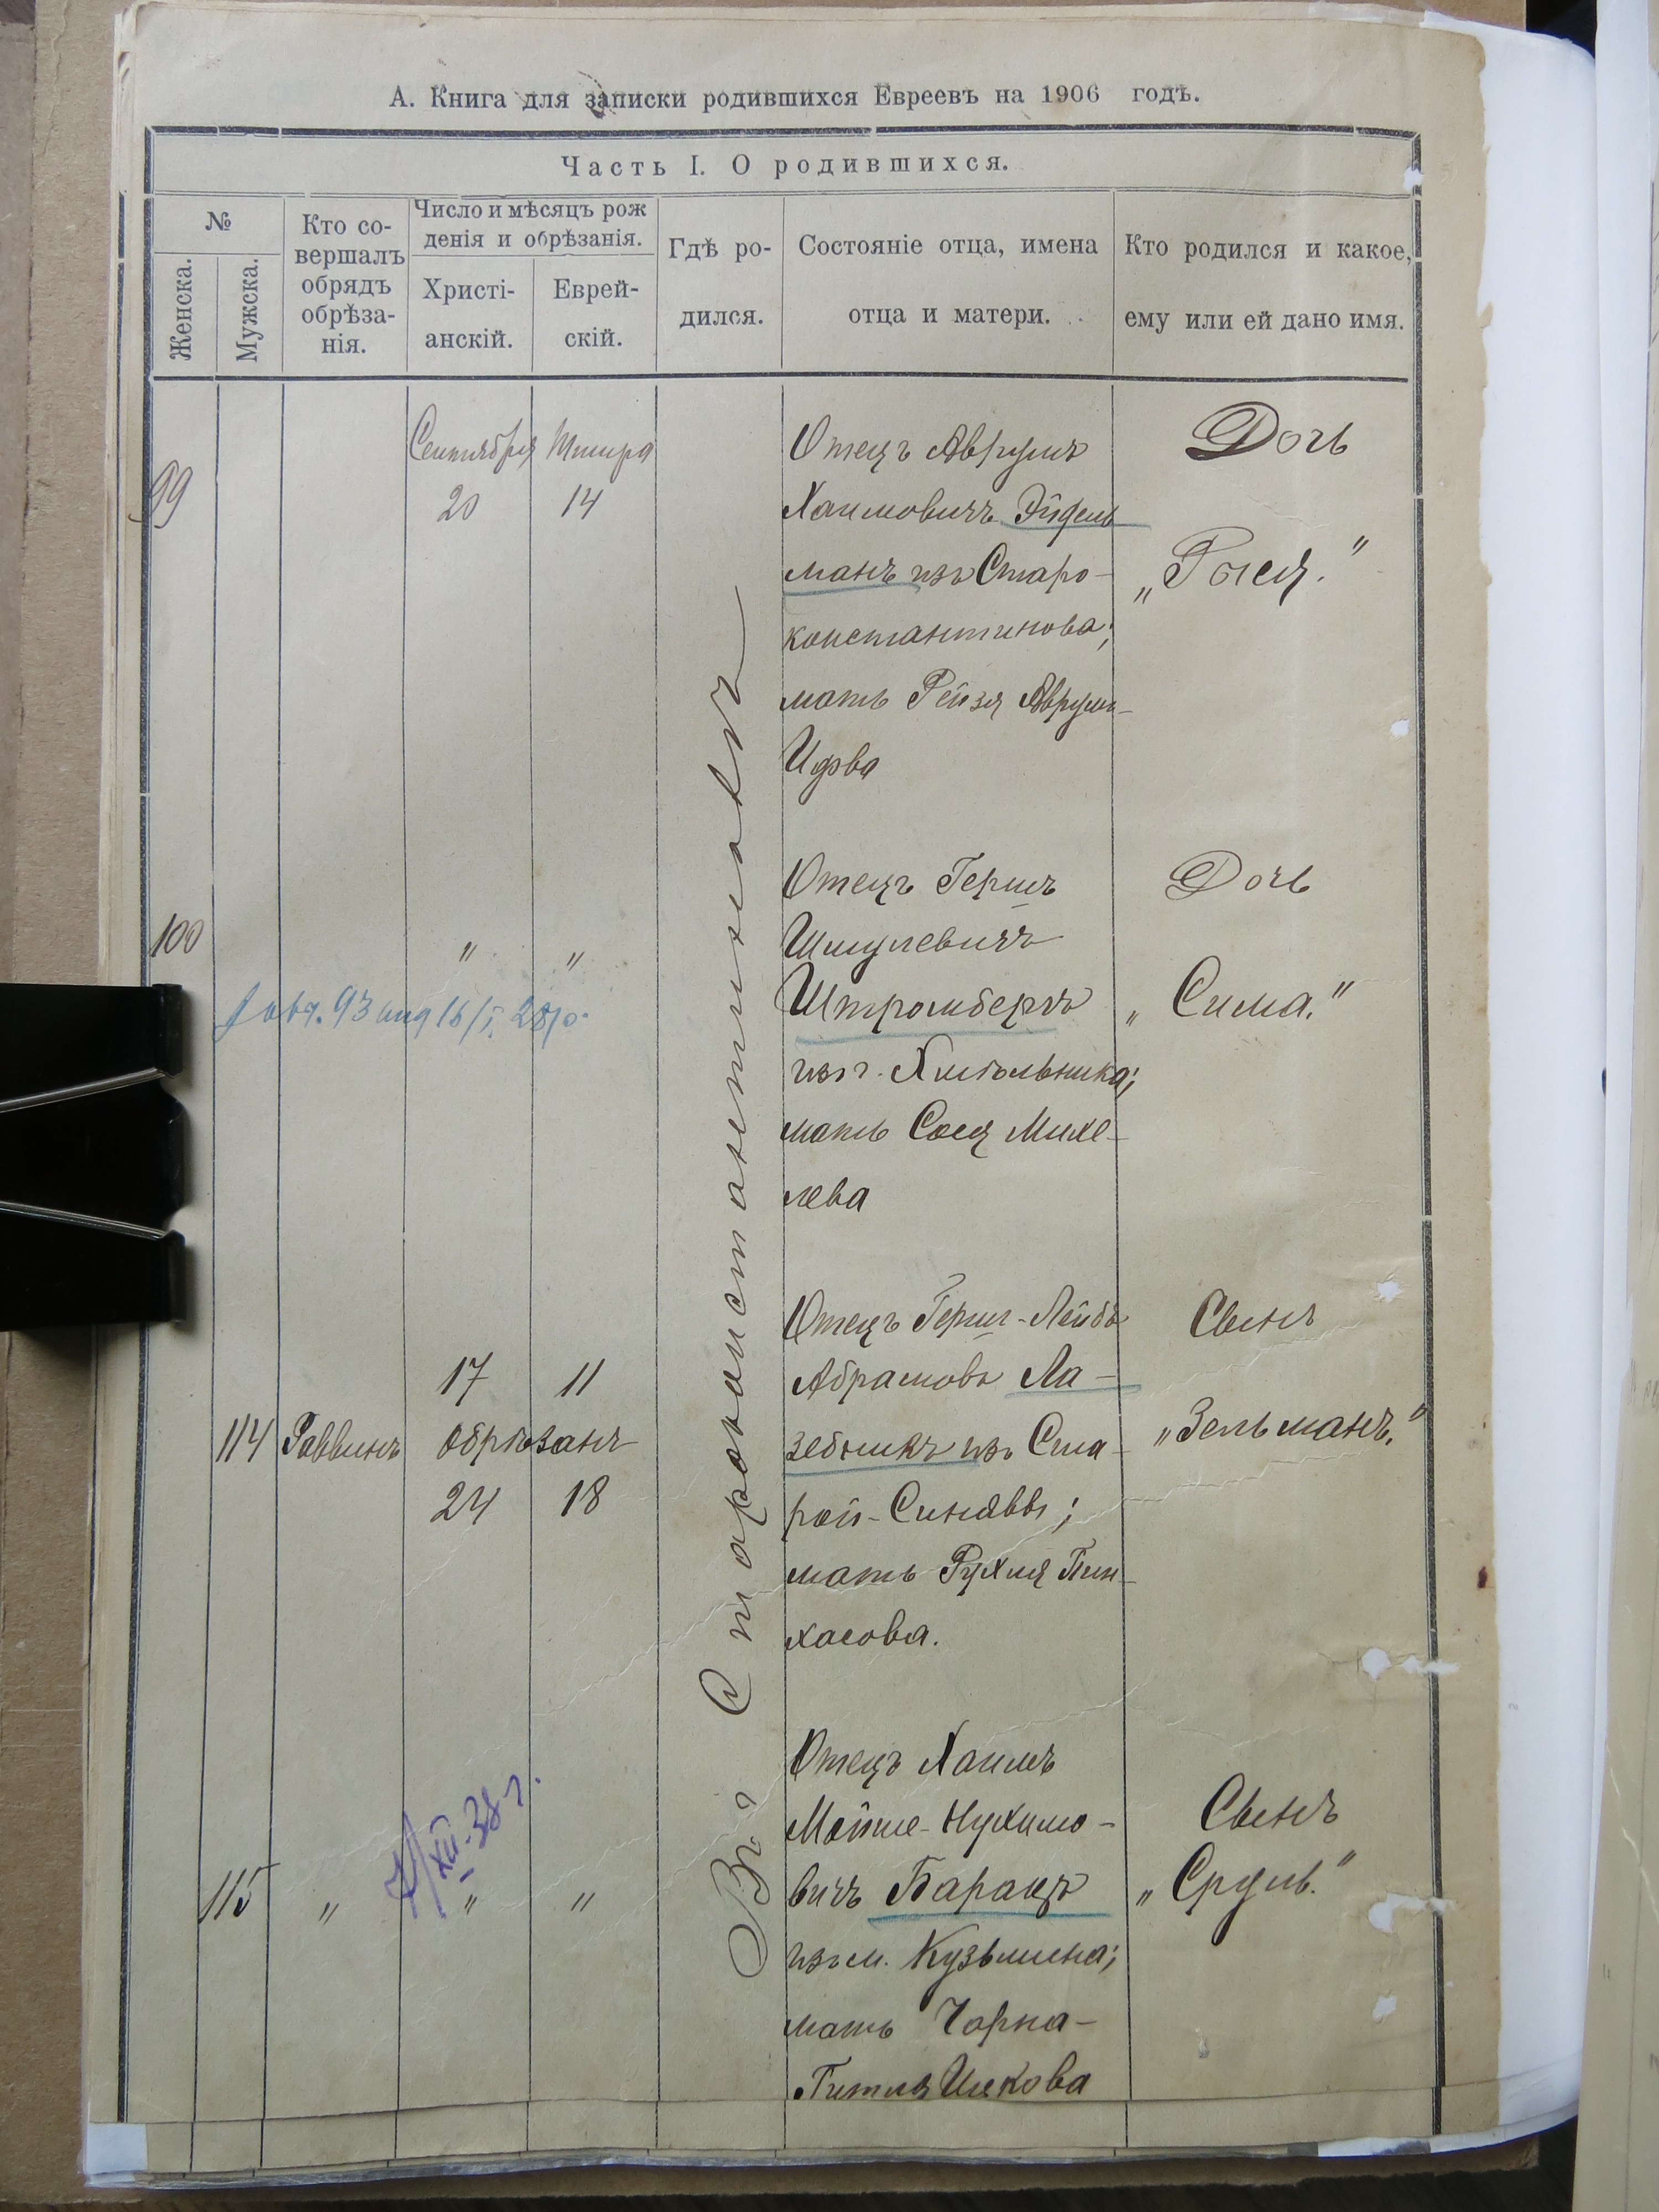 А. Книга для записки родившихся Евреевъ на 1906 годъ.
Часть I. О родившихся.
№
Женска.
Мужска.
Кто со-
вершалъ
обрядъ
обрѣза-
нія.
Число и мѣсяцъ рож
денія и обрѣзанія.
Христі-
анскій.
Еврей-
скій.
Гдѣ ро-
дился.
Состояніе отца, имена
отца и матери.
Кто родился и какое,
ему или ей дано имя.
99
Сентября Тишра
20 14
Въ г. Староконстантиновѣ
Отецъ Аврумъ
Хаимовичъ Эйдель
манъ изъ Старо-
константинова;
мать Рейзя Аврум-
Идова
Дочь
„Рыся."
100
" "
16/I
Отецъ Гершъ
Шмулевичъ
Штромбергъ
изъ г. Хмельника;
мать Сося Михе-
лева
Дочь
„Сима."
114 Раввинъ
17 11
обрѣзанъ
24 18
Отецъ Герш-Лейбъ
Абрамовъ Ла-
зебникъ изъ Ста-
рой-Синявы;
мать Рухля Пин-
хасова.
Сынъ
„Зельманъ."
115 " " "
XII-38 г.
Отецъ Хаимъ
Мойше-Нухимо-
вичъ Баракъ
изъ м. Кузьмина;
мать Чарна-
Гитля Ицкова
Сынъ
„Сруль."